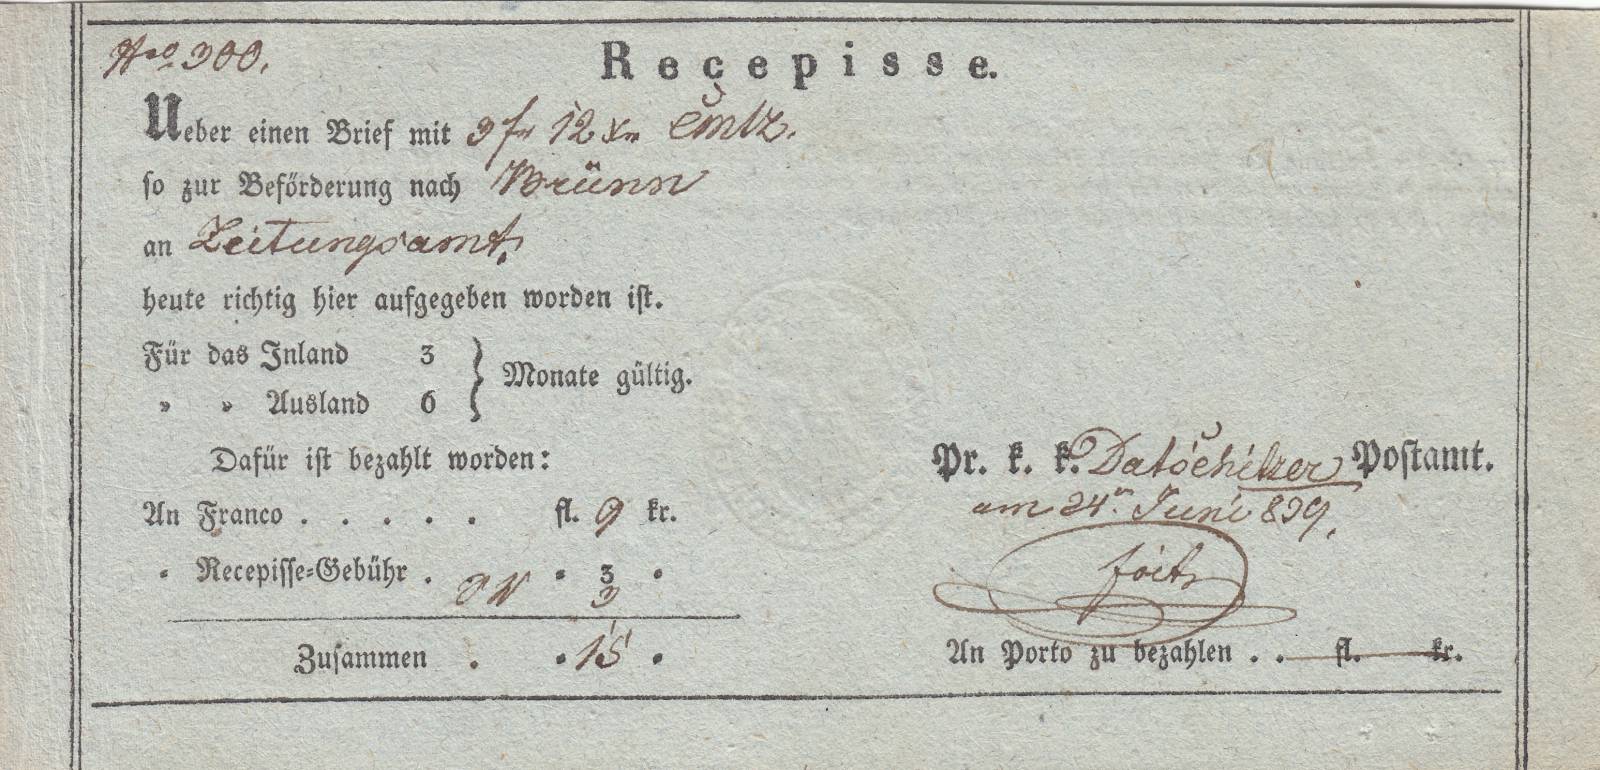 Nro 300.
Recepisse.
Ueber einen Brief mit 3 fr 12 xr Cmlz.
so zur Beförderung nach Brünn
an Zeitungsamt.
heute richtig hier aufgegeben worden ist.
Für das Inland 3
" " Ausland 6 } Monate gültig.
Dafür ist bezahlt worden:
An Franco . . . . . fl. 9 kr.
" Recepisse-Gebühr . " 3 "
3
Zusammen . " 15 "
Pr. k. k. Datschitzer Postamt.
am 24n Juni 839.
An Porto zu bezahlen . . fl. kr.